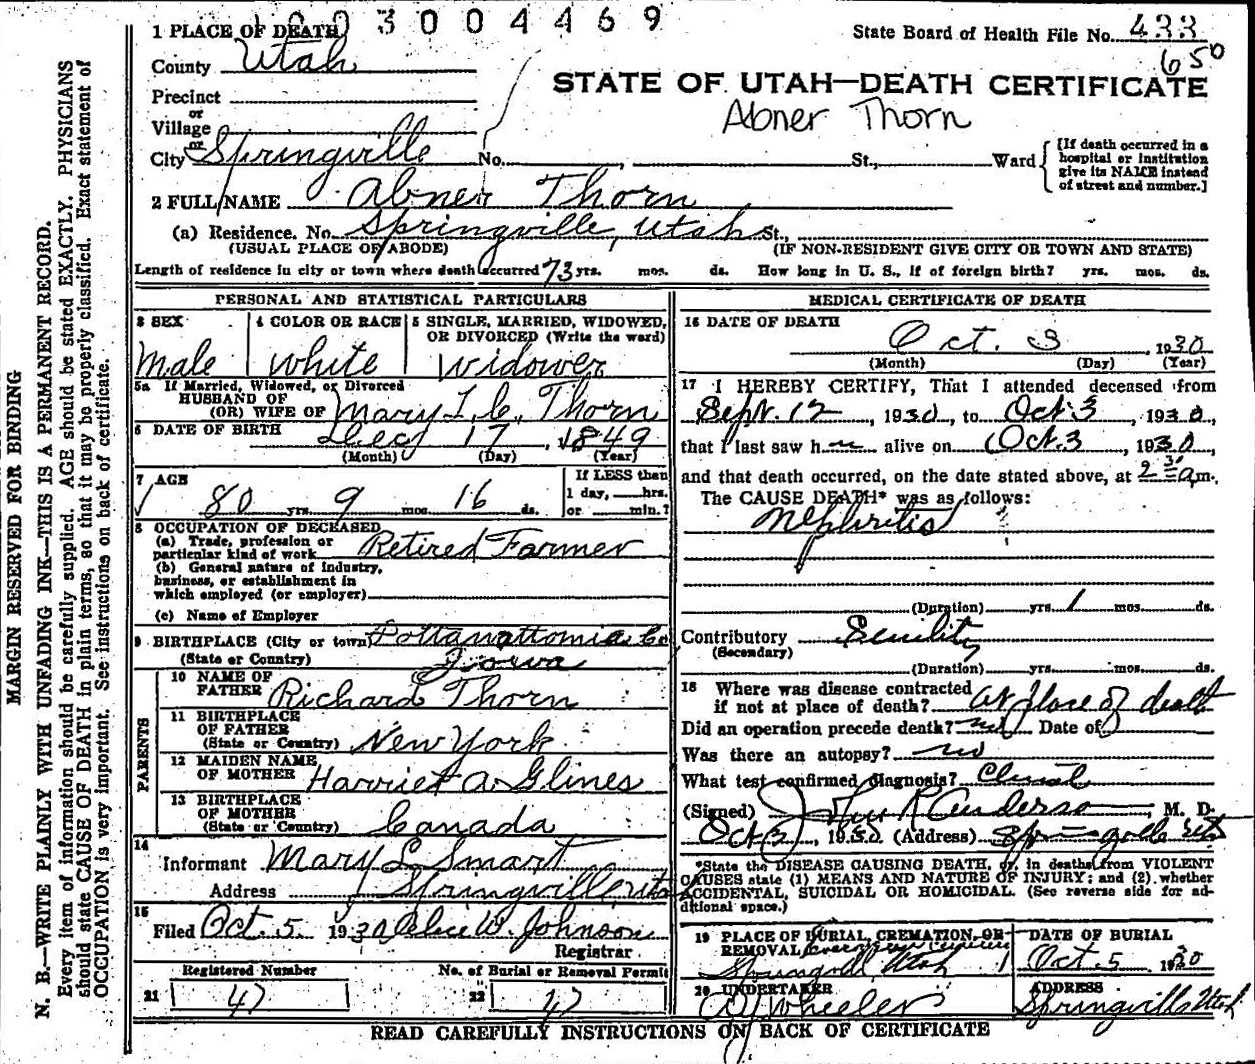 1003004469
1 PLACE OF DEATH
State Board of Health File No. 433
650
County Utah
STATE OF UTAH—DEATH CERTIFICATE
Precinct
or
Village
or
Abner Thorn
City Springville No. , St., Ward
[If death occurred in a hospital or institution give its NAME instead of street and number.]
2 FULL NAME Abner Thorn
(a) Residence. No. Springville, Utah St.,
(USUAL PLACE OF ABODE) (IF NON-RESIDENT GIVE CITY OR TOWN AND STATE)
Length of residence in city or town where death occurred 73 yrs. mos. ds. How long in U. S., if of foreign birth? yrs. mos. ds.
PERSONAL AND STATISTICAL PARTICULARS
3 SEX
Male
4 COLOR OR RACE
White
5 SINGLE, MARRIED, WIDOWED,
OR DIVORCED (Write the word)
Widower
5a If Married, Widowed, or Divorced
HUSBAND OF
(OR) WIFE OF Mary L. C. Thorn
6 DATE OF BIRTH Dec 17, 1849
(Month) (Day) (Year)
7 AGE
80 yrs. 9 mos. 16 ds.
If LESS than
1 day, hrs.
or min.?
8 OCCUPATION OF DECEASED
(a) Trade, profession or
particular kind of work Retired Farmer
(b) General nature of industry,
business, or establishment in
which employed (or employer)
(c) Name of Employer
9 BIRTHPLACE (City or town) Pottawattomie Co
(State or Country) Iowa
PARENTS
10 NAME OF
FATHER Richard Thorn
11 BIRTHPLACE
OF FATHER
(State or Country) New York
12 MAIDEN NAME
OF MOTHER Harriet A. Glines
13 BIRTHPLACE
OF MOTHER
(State or Country) Canada
14
Informant Mary L Smart
Address Springville Utah
15
Filed Oct. 5 1930 Alice W. Johnson
Registrar
Registered Number No. of Burial or Removal Permit
21 47 22 47
MEDICAL CERTIFICATE OF DEATH
16 DATE OF DEATH
Oct. 3, 1930
(Month) (Day) (Year)
17 I HEREBY CERTIFY, That I attended deceased from
Sept. 12, 1930, to Oct 3, 1930,
that I last saw h m alive on Oct. 3, 1930,
and that death occurred, on the date stated above, at 2 30 a m.
The CAUSE DEATH* was as follows:
Nephritis
(Duration) yrs. 1 mos. ds.
Contributory Senility
(Secondary)
(Duration) yrs. mos. ds.
18 Where was disease contracted
if not at place of death? at place of death
Did an operation precede death? no Date of
Was there an autopsy? no
What test confirmed diagnosis? Clinical
(Signed) John R Anderson, M. D.
Oct 3, 1930 (Address) Springville Utah
*State the DISEASE CAUSING DEATH, or, in deaths from VIOLENT
CAUSES state (1) MEANS AND NATURE OF INJURY; and (2) whether
ACCIDENTAL, SUICIDAL OR HOMICIDAL. (See reverse side for ad-
ditional space.)
19 PLACE OF BURIAL, CREMATION, OR
REMOVAL Evergreen Cemetery
Springville, Utah
DATE OF BURIAL
Oct. 5 1930
20 UNDERTAKER
A Y Wheeler
ADDRESS
Springville Utah
READ CAREFULLY INSTRUCTIONS ON BACK OF CERTIFICATE
MARGIN RESERVED FOR BINDING
N. B.—WRITE PLAINLY WITH UNFADING INK—THIS IS A PERMANENT RECORD.
Every item of information should be carefully supplied. AGE should be stated EXACTLY. PHYSICIANS
should state CAUSE OF DEATH in plain terms, so that it may be properly classified. Exact statement of
OCCUPATION, is very important. See instructions on back of certificate.